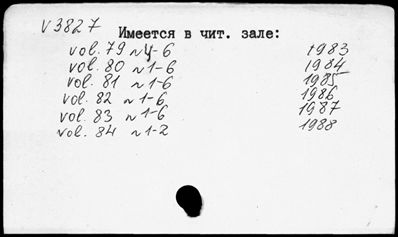 V 3827
Имеется в чит. зале:
vol. 79 N 4-6 1983
vol. 80 N 1-6 1984
vol. 81 N 1-6 1985
vol. 82 N 1-6 1986
vol. 83 N 1-6 1987
vol. 84 N 1-2 1988